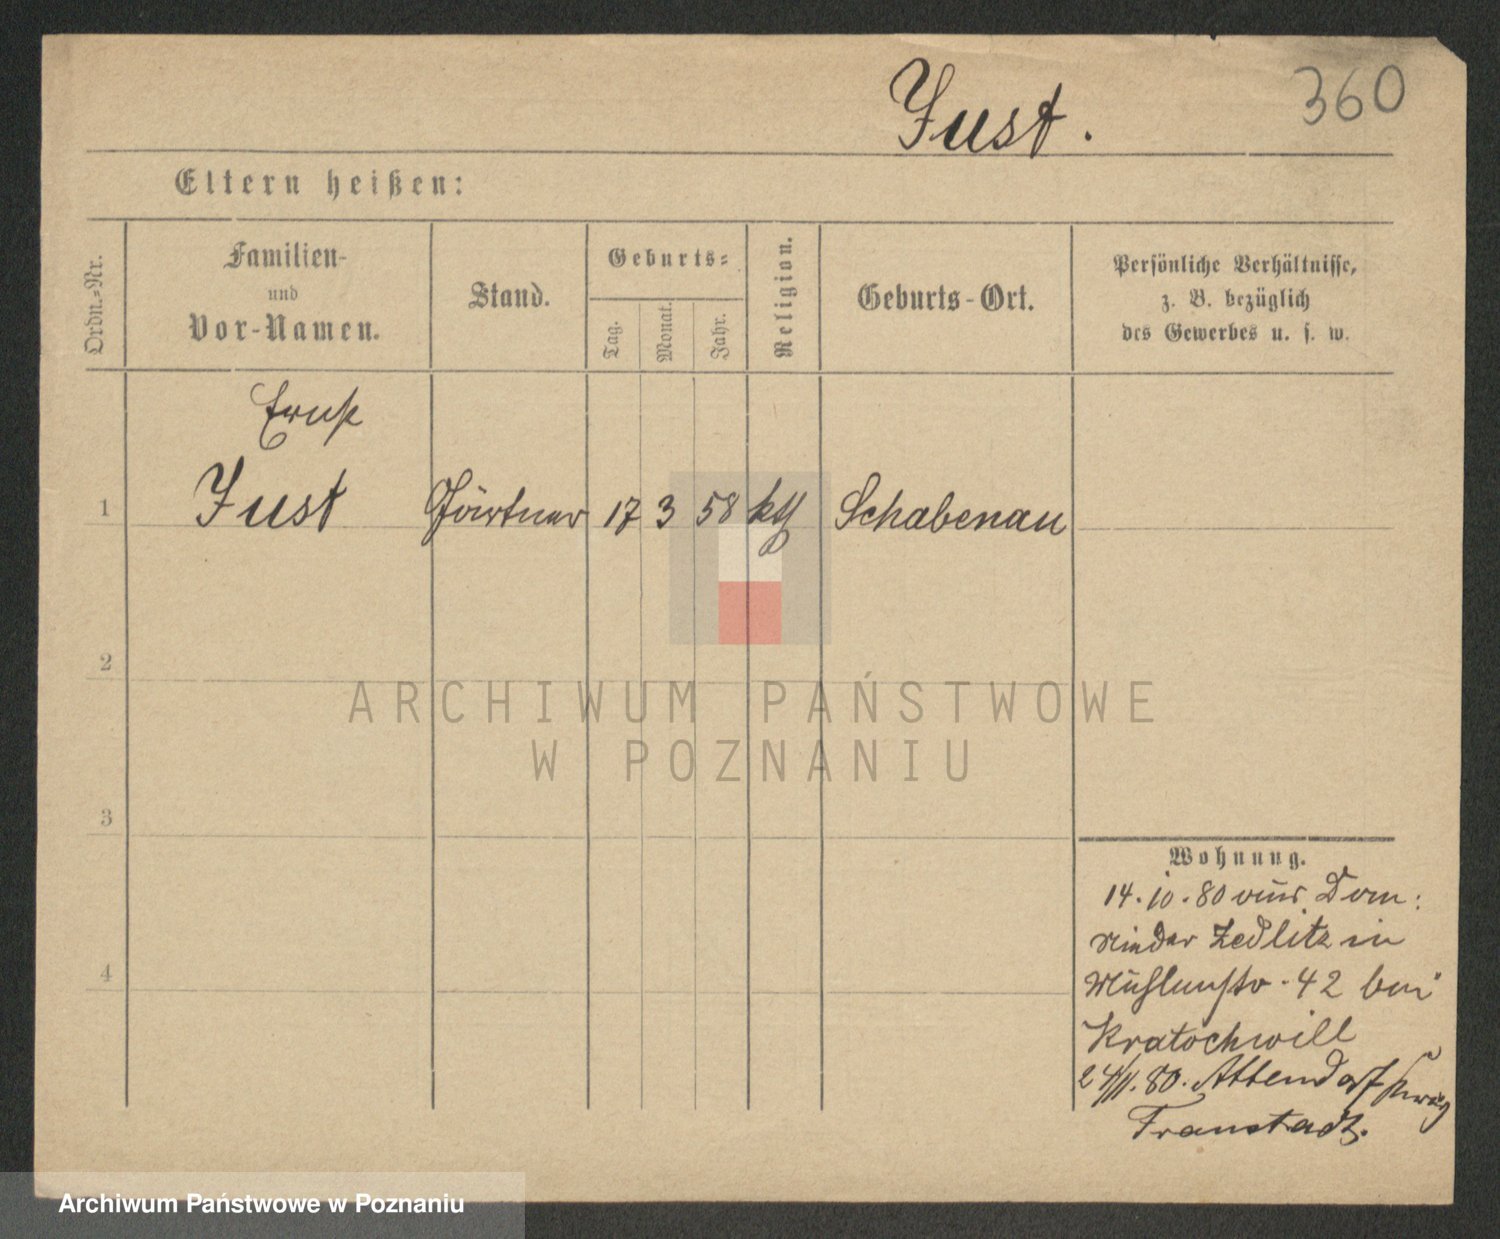 Just.
360
Eltern heißen:
Ordn.-Nr.
Familien-
und
Vor-Namen.
Stand.
Geburts-
Tag.
Monat.
Jahr.
Religion.
Geburts-Ort.
Persönliche Verhältnisse,
z. B. bezüglich
des Gewerbes u. s. w.
Ernst
1 Just Gärtner 17 3 58 kth Schabenau
2
3
4
Wohnung.
14.10.80 aus Dom:
Nieder Zedlitz in
Mühlenstr. 42 bei
Kratochwill
24/11.80. Attendorf
Fraustadt.
ARCHIWUM PAŃSTWOWE
W POZNANIU
Archiwum Państwowe w Poznaniu